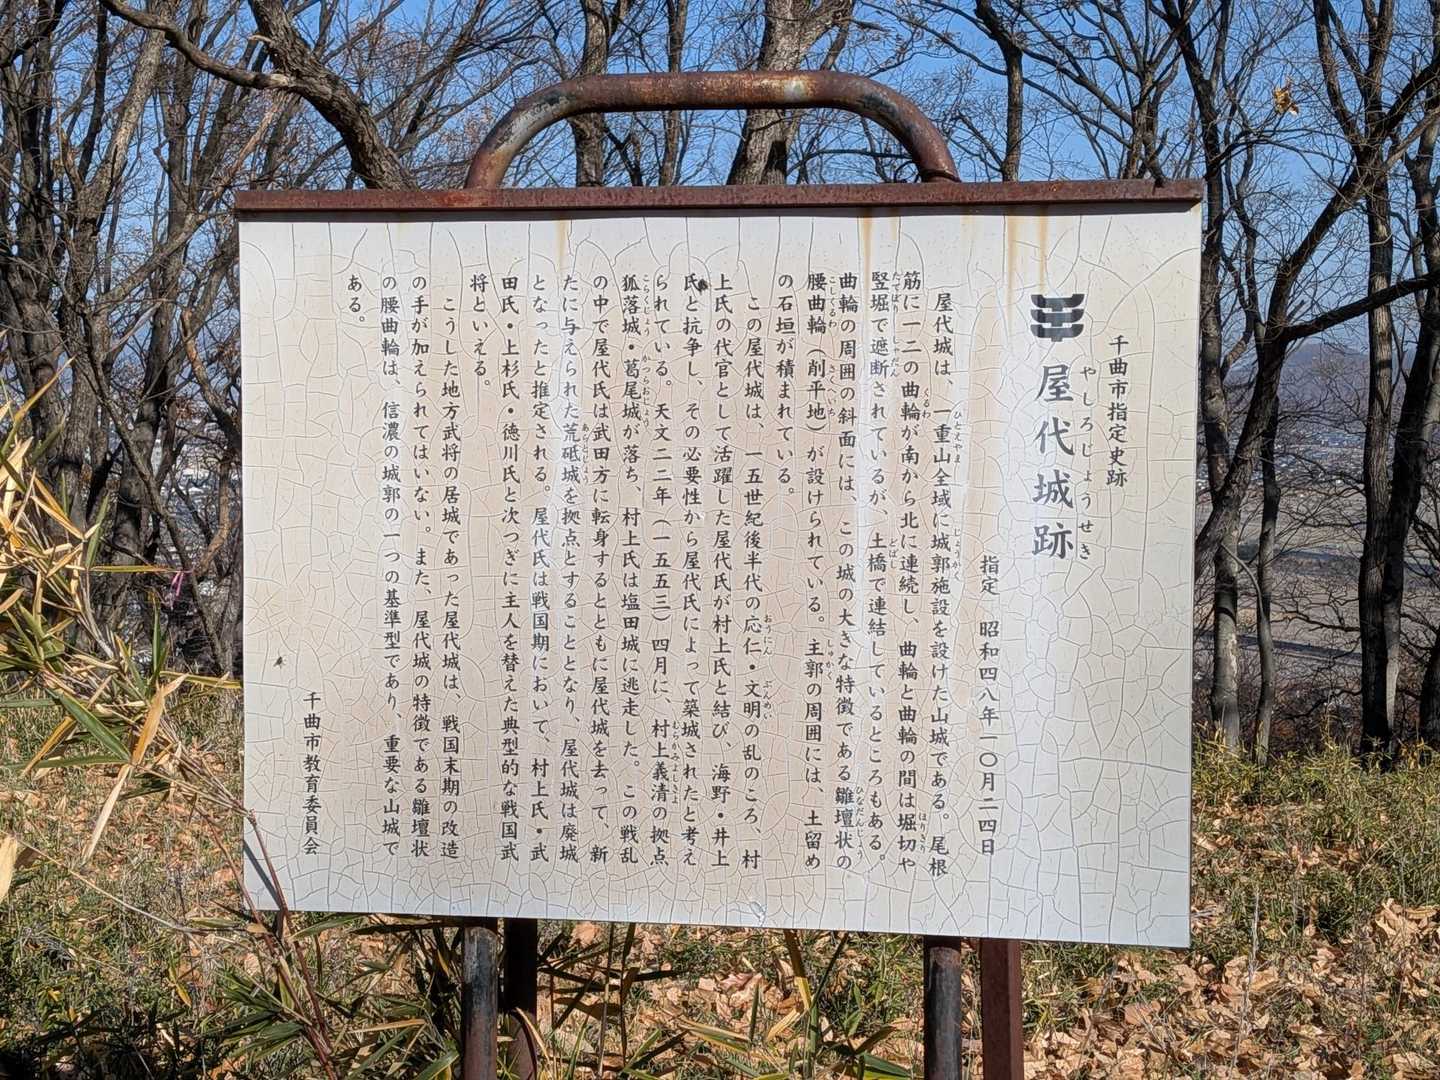 千曲市指定史跡
屋代城跡
やしろじょうせき
指定　昭和四八年一〇月二四日
　屋代城は、一重山全域に城郭施設を設けた山城である。尾根
筋に一二の曲輪が南から北に連続し、曲輪と曲輪の間は堀切や
竪堀で遮断されているが、土橋で連結しているところもある。
曲輪の周囲の斜面には、この城の大きな特徴である雛壇状の
腰曲輪（削平地）が設けられている。主郭の周囲には、土留め
の石垣が積まれている。
　この屋代城は、一五世紀後半代の応仁・文明の乱のころ、村
上氏の代官として活躍した屋代氏が村上氏と結び、海野・井上
氏と抗争し、その必要性から屋代氏によって築城されたと考え
られている。天文二二年（一五五三）四月に、村上義清の拠点
狐落城・葛尾城が落ち、村上氏は塩田城に逃走した。この戦乱
の中で屋代氏は武田方に転身するとともに屋代城を去って、新
たに与えられた荒砥城を拠点とすることとなり、屋代城は廃城
となったと推定される。屋代氏は戦国期において、村上氏・武
田氏・上杉氏・徳川氏と次つぎに主人を替えた典型的な戦国武
将といえる。
　こうした地方武将の居城であった屋代城は、戦国末期の改造
の手が加えられてはいない。また、屋代城の特徴である雛壇状
の腰曲輪は、信濃の城郭の一つの基準型であり、重要な山城で
ある。
千曲市教育委員会